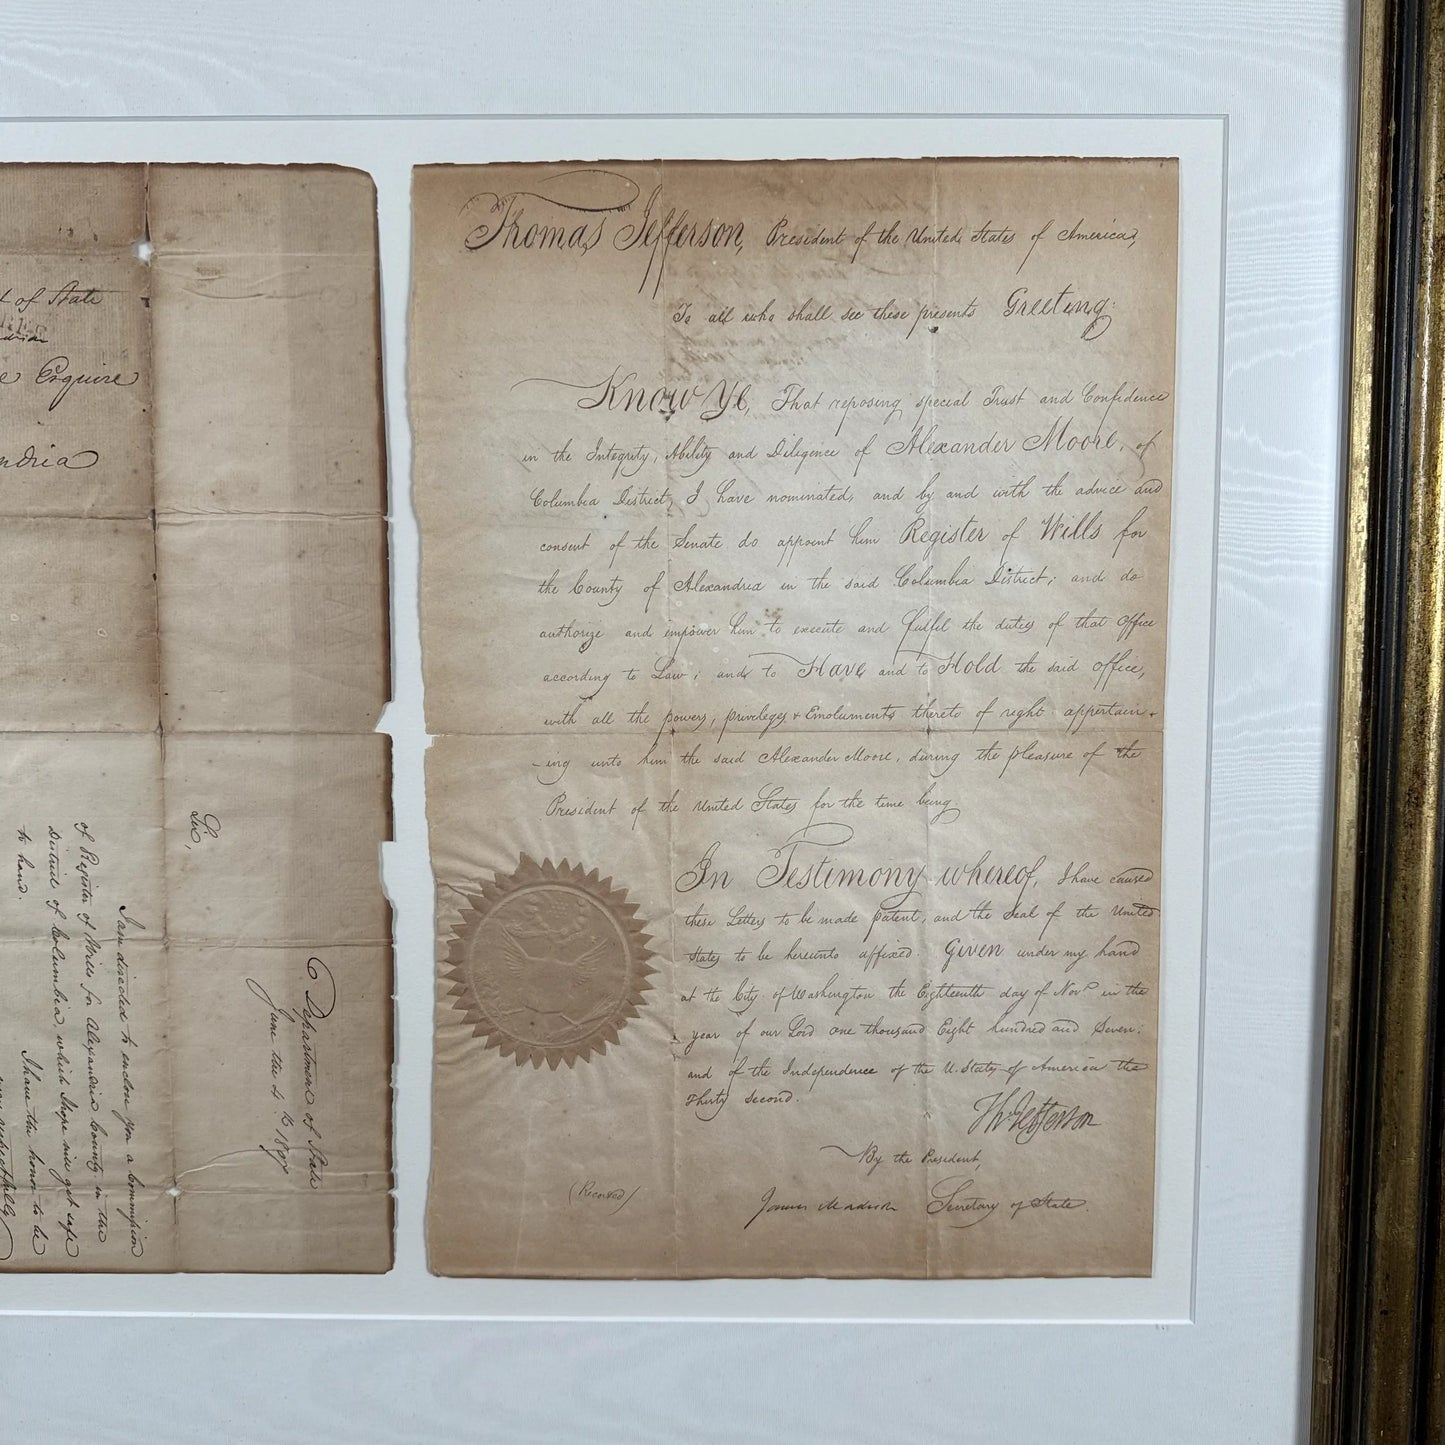 t of State
e Esquire
ndria
Department of State
June the 4th 1807
Sir,
I am directed to enclose you a Commission
of Register of Wills for Alexandria County in the
District of Columbia, which I hope will get safe
to hand.
I have the honor to be
very respectfully
Thomas Jefferson, President of the United States of America,
To all who shall see these presents Greeting:
Know Ye, That reposing special Trust and Confidence
in the Integrity, Ability and Diligence of Alexander Moore, of
Columbia District, I have nominated, and by and with the advice and
consent of the Senate do appoint him Register of Wills for
the County of Alexandria in the said Columbia District; and do
authorize and empower him to execute and fulfil the duties of that office
according to Law; and to Have and to Hold the said office,
with all the powers, privileges & Emoluments thereto of right appertain-
-ing unto him the said Alexander Moore, during the pleasure of the
President of the United States for the time being
In Testimony whereof, I have caused
these Letters to be made patent, and the Seal of the United
States to be hereunto affixed. Given under my hand
at the City of Washington the Eighteenth day of Novr in the
year of our Lord one thousand Eight hundred and Seven:
and of the Independence of the U. States of America the
Thirty Second.
Th: Jefferson
By the President,
James Madison Secretary of State.
(Recorded)